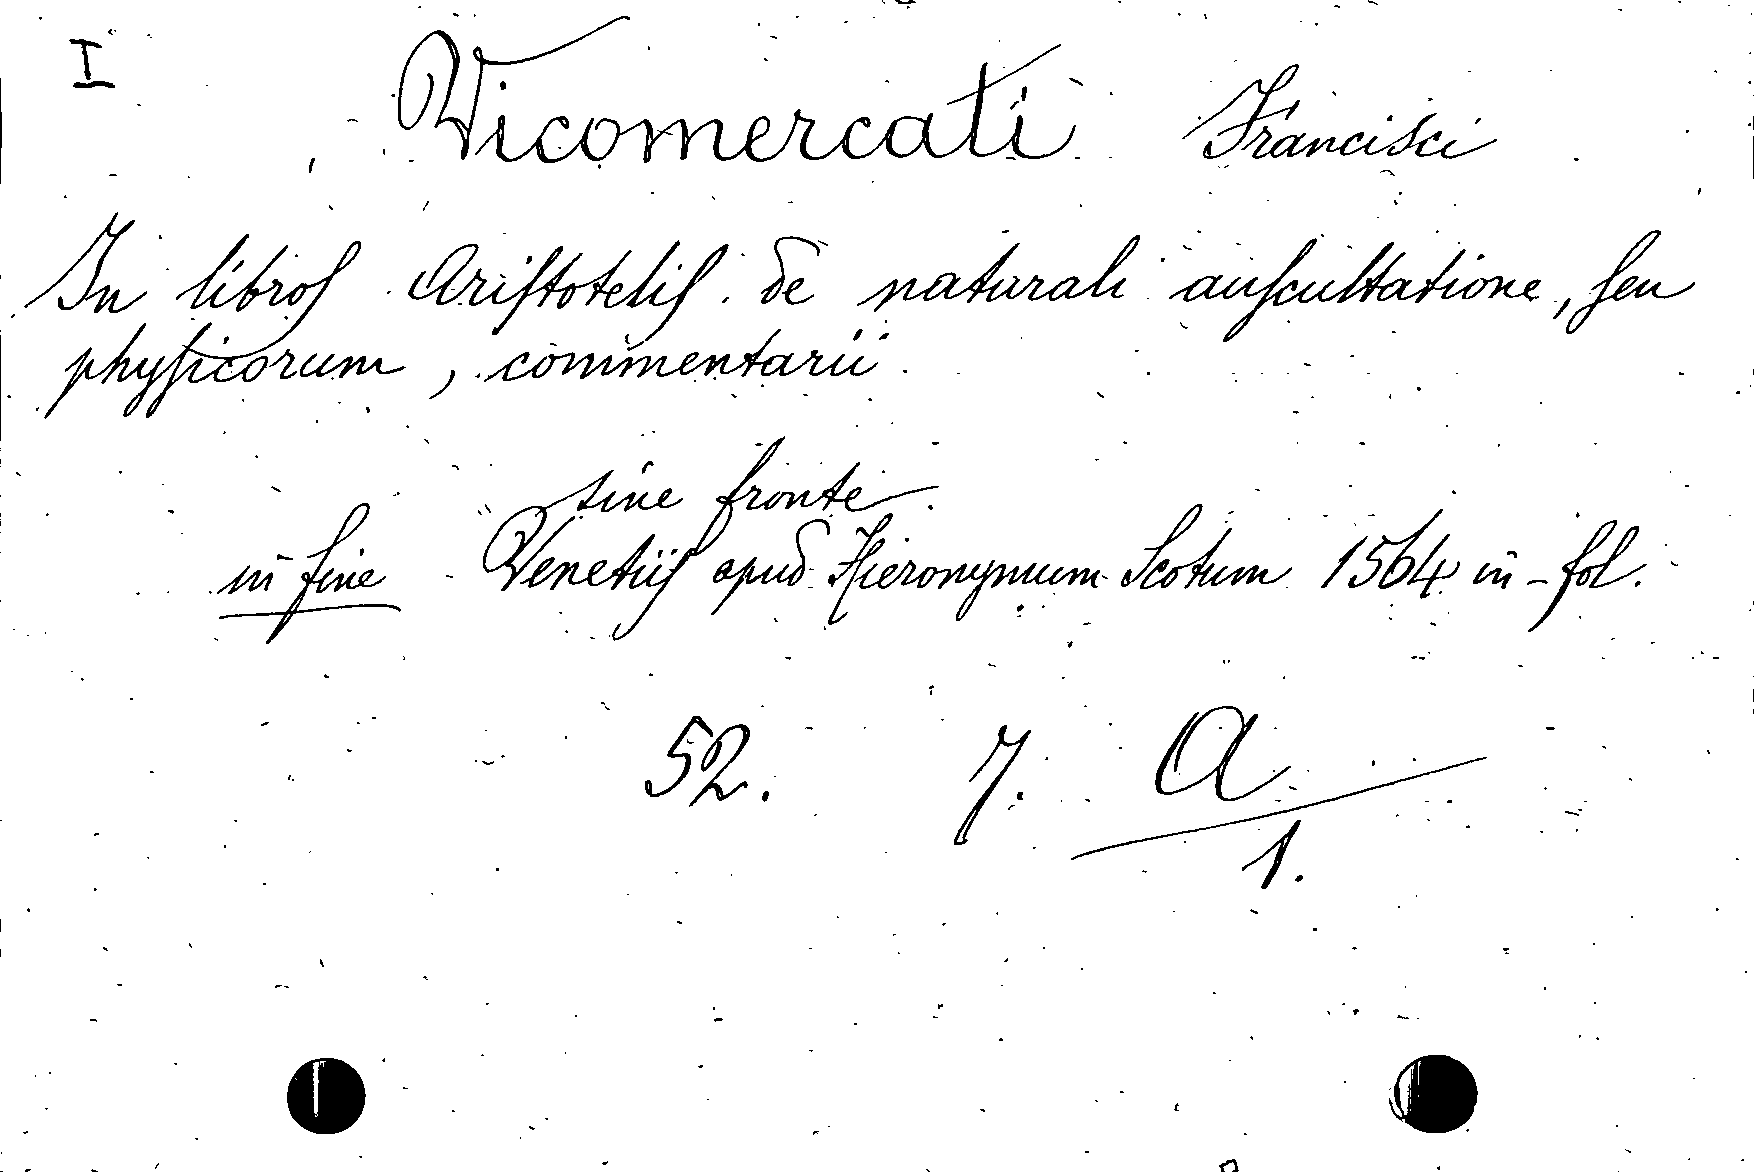 I
Vicomercati Francisci
In libros Aristotelis de naturali auscultatione, seu
physicorum, commentarii
sine fronte.
in fine Venetiis apud Hieronymum Scotum 1564 in-fol.
52. 7. A
1.